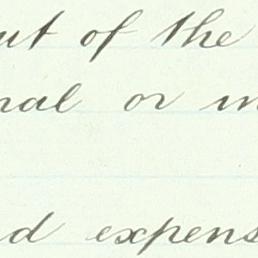 ut of the
nal or in
d expens